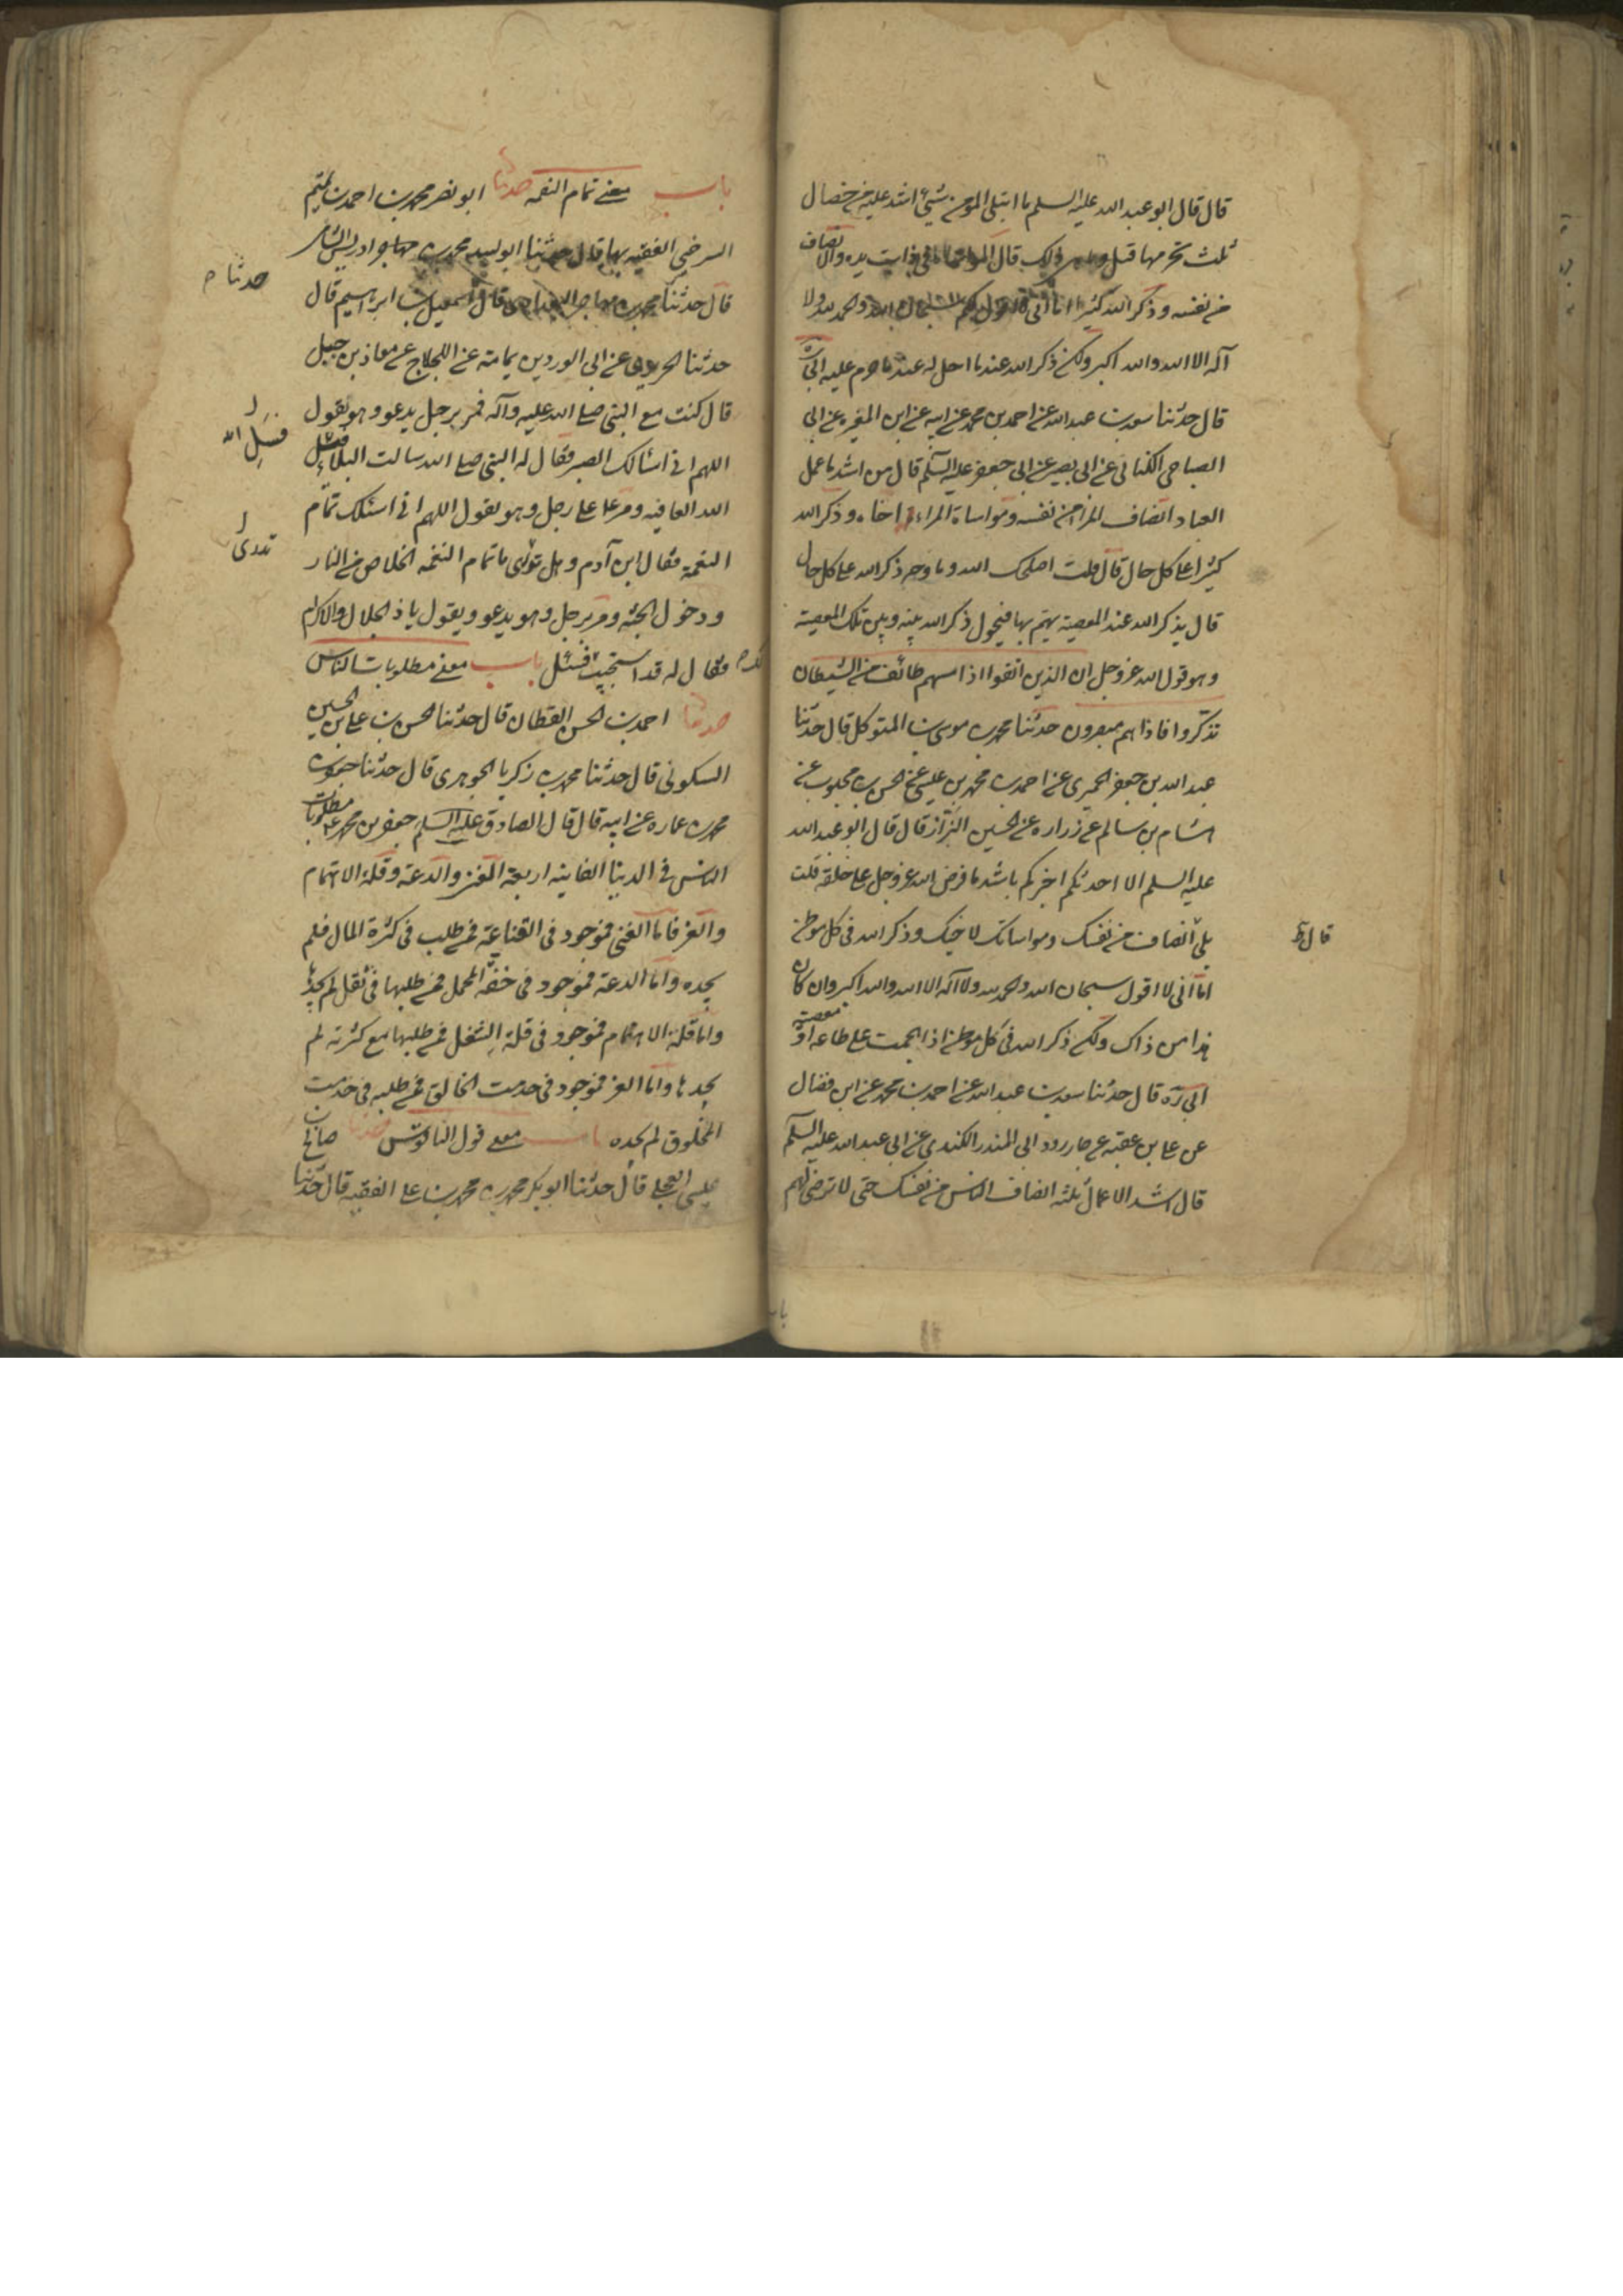 قال قال ابو عبد الله عليه السلم ما ابتلى المومن بشيء اشد عليه من خصال
ثلث يحرمها قيل وما هن ذلك قال المواساة في ذات يده والانصاف
من نفسه وذكر الله كثيرا اما اني لا اقول لكم سبحان الله والحمد لله ولا
آله الا الله والله اكبر ولكن ذكر الله عند ما احل له عند ما حرم عليه ابي ره
قال حدثنا سعد بن عبد الله عن احمد بن محمد عن ابيه عن ابن المغيره عن ابي
الصباحى الكناني عن ابي بصير عن ابي جعفر عليه السلم قال من اشد ما عمل
العباد انصاف المرا من نفسه ومواساة المراء اخاه وذكر الله
كثيرا على كل حال قال قلت اصلحك الله وما وجه ذكر الله على كل حال
قال يذكر الله عند المعصية يهتم بها فيحول ذكر الله بينه وبين تلك المعصية
وهو قول الله عز وجل ان الذين اتقوا اذا مسهم طائف من الشيطان
تذكروا فاذا هم مبصرون حدثنا محمد بن موسى بن المتوكل قال حدثنا
عبد الله بن جعفر الحميرى عن احمد بن محمد بن عيسى عن الحسن بن محبوب عن
هشام بن سالم عن زراره عن الحسين البزاز قال قال ابو عبد الله
عليه السلم الا احدثكم اخبركم باشد ما فرض الله عز وجل على خلقه قلت
بلى انصاف من نفسك ومواساتك لاخيك وذكر الله في كل موطن
قال
اما اني لا اقول سبحان الله والحمد لله ولا آله الا الله والله اكبر وان كان
هذا من ذاك ولكن ذكر الله في كل موطن اذا هجمت على طاعه او معصيته
ابي ره قال حدثنا سعد بن عبد الله عن احمد بن محمد عن ابن فضال
عن على بن عقبه عن جارود ابي المنذر الكندى عن ابي عبد الله عليه السلم
قال اشد الاعمال ثلثه انصاف الناس من نفسك حتى لا ترضى لهم
باب معنى تمام النعمه حدثنا ابو نصر محمد بن احمد بن تميم
السرخسى الفقيه بها قال حدثنا ابو لبيد محمد بن ادريس الشامى
حدثنا
قال حدثنا محمد بن مهاجر البغدادى قال اسمعيل بن ابرهيم قال
حدثنا الحريرى عن ابي الورد بن يمامة عن اللجلاج عن معاذ بن جبل
قال كنت مع النبي صلى الله عليه وآله فمر برجل يدعو وهو يقول
اللهم اني اسئالك الصبر فقال له النبي صلى الله سالت البلاء فسئل
فسل الله
الله العافيه ومر ع على رجل وهو يقول اللهم اني اسئلك تمام
النعمة فقال ابن آدم وهل تولى ما تمام النعمه الخلاص من النار
تدرى
ودخول الجنه ومر برجل وهو يدعو ويقول يا ذ الجلال والاكرام
فقال له قد استجيب فسئل باب معنى مطلوبات الناس
حدثنا احمد بن الحسن القطان قال حدثنا الحسن بن على بن الحسين
السكوني قال حدثنا محمد بن زكريا الجوهرى قال حدثنا جعفر بن
محمد بن عماره عن ابيه قال قال الصادق عليه السلم جعفر بن محمد ع مطلوبات
الناس في الدنيا الفانيه اربعة الغنى والدعة وقلة الاهتمام
والعز فاما الغنى فموجود في القناعة فمن طلب في كثرة المال فلم
يجده واما الدعة فموجود في خفة المحمل فمن طلبها في ثقل لم يجدها
واما قلة الاهتمام فموجود في قلة الشغل فمن طلبها مع كثرته لم
يجدها واما العز فموجود في خدمت الخالق فمن طلبه في خدمت
المخلوق لم يجده باب معنى قول الناقوس حدثنا صالح بن
عيسى العجلى قال حدثنا ابو بكر محمد بن محمد بن على الفقيه قال حدثنا